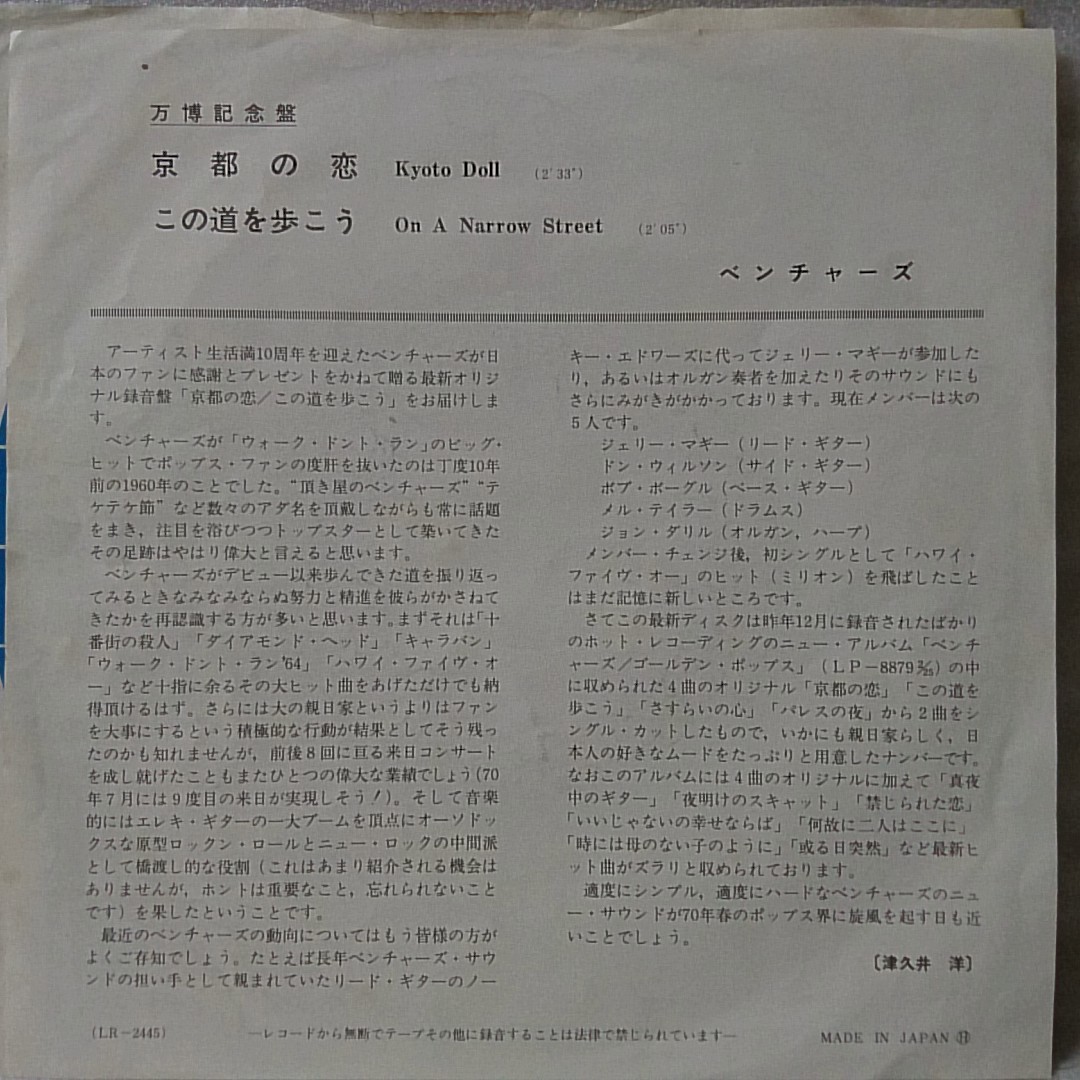 万博記念盤
京都の恋 Kyoto Doll (2′33″)
この道を歩こう On A Narrow Street (2′05″)
ベンチャーズ
アーティスト生活満10周年を迎えたベンチャーズが日
本のファンに感謝とプレゼントをかねて贈る最新オリジ
ナル録音盤「京都の恋／この道を歩こう」をお届けしま
す。
ベンチャーズが「ウォーク・ドント・ラン」のビッグ・
ヒットでポップス・ファンの度肝を抜いたのは丁度10年
前の1960年のことでした。“頂き屋のベンチャーズ”“テ
ケテケ節”など数々のアダ名を頂戴しながらも常に話題
をまき，注目を浴びつつトップスターとして築いてきた
その足跡はやはり偉大と言えると思います。
ベンチャーズがデビュー以来歩んできた道を振り返っ
てみるときなみなみならぬ努力と精進を彼らがかさねて
きたかを再認識する方が多いと思います。まずそれは「十
番街の殺人」「ダイアモンド・ヘッド」「キャラバン」
「ウォーク・ドント・ラン'64」「ハワイ・ファイヴ・オ
ー」など十指に余るその大ヒット曲をあげただけでも納
得頂けるはず。さらには大の親日家というよりはファン
を大事にするという積極的な行動が結果としてそう残っ
たのかも知れませんが，前後8回に亘る来日コンサート
を成し就げたこともまたひとつの偉大な業績でしょう(70
年7月には9度目の来日が実現しそう！)。そして音楽
的にはエレキ・ギターの一大ブームを頂点にオーソドッ
クスな原型ロックン・ロールとニュー・ロックの中間派
として橋渡し的な役割（これはあまり紹介される機会は
ありませんが，ホントは重要なこと，忘れられないこと
です）を果したということです。
最近のベンチャーズの動向についてはもう皆様の方が
よくご存知でしょう。たとえば長年ベンチャーズ・サウ
ンドの担い手として親まれていたリード・ギターのノー
キー・エドワーズに代ってジェリー・マギーが参加した
り，あるいはオルガン奏者を加えたりそのサウンドにも
さらにみがきがかかっております。現在メンバーは次の
5人です。
ジェリー・マギー（リード・ギター）
ドン・ウィルソン（サイド・ギター）
ボブ・ボーグル（ベース・ギター）
メル・テイラー（ドラムス）
ジョン・ダリル（オルガン，ハープ）
メンバー・チェンジ後，初シングルとして「ハワイ・
ファイヴ・オー」のヒット（ミリオン）を飛ばしたこと
はまだ記憶に新しいところです。
さてこの最新ディスクは昨年12月に録音されたばかり
のホット・レコーディングのニュー・アルバム「ベンチ
ャーズ／ゴールデン・ポップス」（LP－8879 ）の中
に収められた4曲のオリジナル「京都の恋」「この道を
歩こう」「さすらいの心」「パレスの夜」から2曲をシ
ングル・カットしたもので，いかにも親日家らしく，日
本人の好きなムードをたっぷりと用意したナンバーです。
なおこのアルバムには4曲のオリジナルに加えて「真夜
中のギター」「夜明けのスキャット」「禁じられた恋」
「いいじゃないの幸せならば」「何故に二人はここに」
「時には母のない子のように」「或る日突然」など最新ヒ
ット曲がズラリと収められております。
適度にシンプル，適度にハードなベンチャーズのニュ
ー・サウンドが70年春のポップス界に旋風を起す日も近
いことでしょう。
〔津久井　洋〕
(LR－2445) ―レコードから無断でテープその他に録音することは法律で禁じられています― MADE IN JAPAN Ⓗ